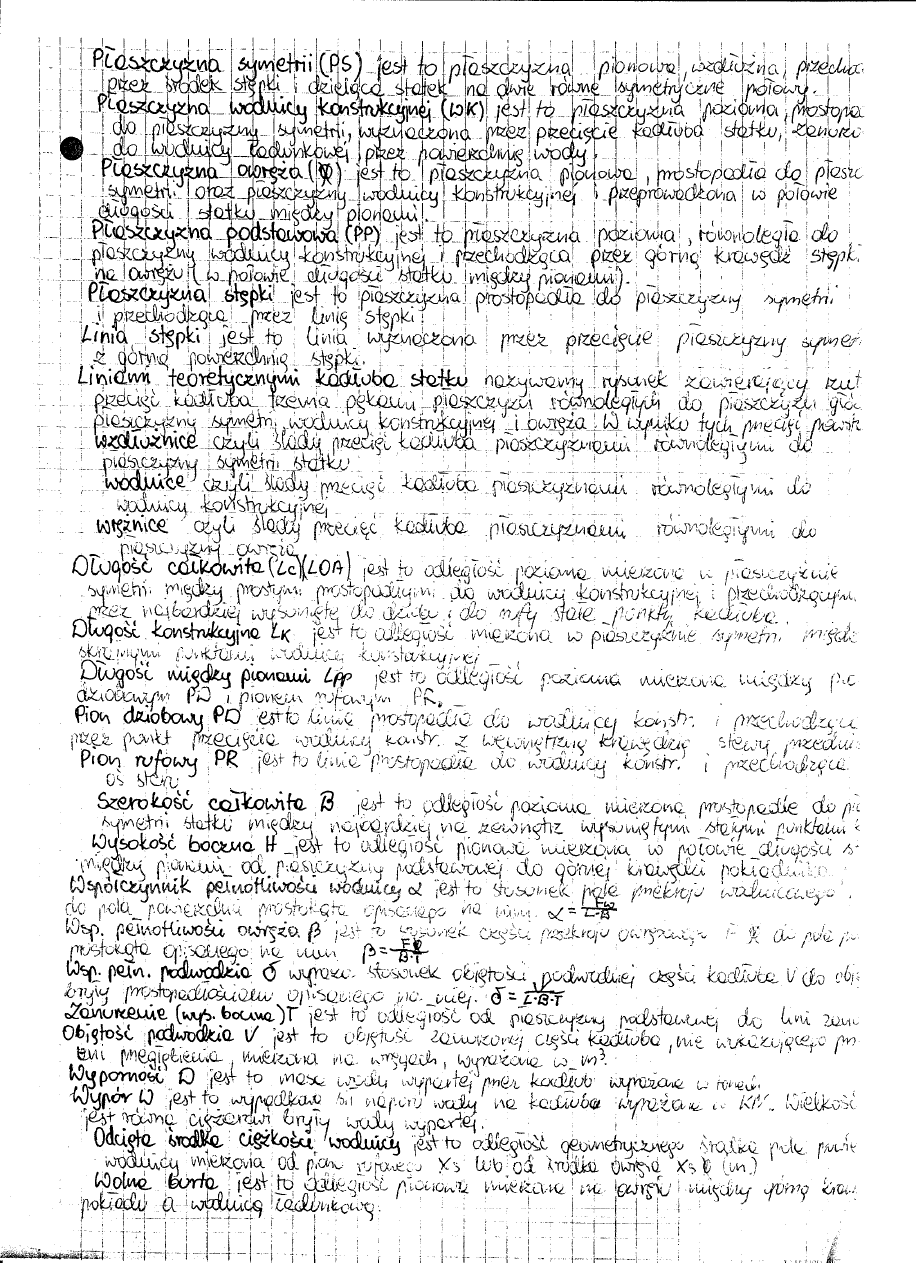 Płaszczyzna symetrii (PS) jest to płaszczyzna pionowa, wzdłużna, przecho
przez środek stępki i dzieląca statek na dwie równe symetryczne połowy.
Płaszczyzna wodnicy konstrukcyjnej (WK) jest to płaszczyzna pozioma, prostopa
do płaszczyzny symetrii, wyznaczona przez przecięcie kadłuba statku, zanurzo
do wodnicy ładunkowej, przez powierzchnię wody.
Płaszczyzna owręża (φ) jest to płaszczyzna pionowa, prostopadła do płaszc
symetrii oraz płaszczyzny wodnicy konstrukcyjnej i przeprowadzona w połowie
długości statku między pionami.
Płaszczyzna podstawowa (PP) jest to płaszczyzna pozioma, równoległa do
płaszczyzny wodnicy konstrukcyjnej i przechodząca przez górną krawędź stępki
na owrężu (w połowie długości statku między pionami).
Płaszczyzna stępki jest to płaszczyzna prostopadła do płaszczyzny symetrii
i przechodząca przez linię stępki.
Linia stępki jest to linia wyznaczona przez przecięcie płaszczyzny symetr
z górną powierzchnią stępki.
Liniami teoretycznymi kadłuba statku nazywamy rysunek zawierający rzut
przecięć kadłuba trzema pękami płaszczyzn równoległym do płaszczyzn głó
płaszczyzny symetrii, wodnicy konstrukcyjnej i owręża. W wyniku tych przecięć powst
wzdłużnice czyli ślady przecięć kadłuba płaszczyznami równoległymi do
płaszczyzny symetrii statku
wodnice czyli ślady przecięć kadłuba płaszczyznami równoległymi do
wodnicy konstrukcyjnej
wrężnice czyli ślady przecięć kadłuba płaszczyznami równoległymi do
płaszczyzny owręża
Długość całkowita (Lc)(LOA) jest to odległość pozioma mierzona w płaszczyźnie
symetrii między prostymi prostopadłymi do wodnicy konstrukcyjnej i przechodzącym
przez najbardziej wysunięte do dziobu i do rufy stałe punkty kadłuba.
Długość konstrukcyjna LK jest to odległość mierzona w płaszczyźnie symetrii międz
skrajnymi punktami wodnicy konstrukcyjnej
Długość między pionami LPP jest to odległość pozioma mierzona między pio
dziobowym PD i pionem rufowym PR.
Pion dziobowy PD jest to linia prostopadła do wodnicy konstr. i przechodząca
przez punkt przecięcia wodnicy konstr. z wewnętrzną krawędzią stewy przedni
Pion rufowy PR jest to linia prostopadła do wodnicy konstr. i przechodząca
oś steru
Szerokość całkowita B jest to odległość pozioma mierzona prostopadle do pł
symetrii statku między najbardziej na zewnątrz wysuniętymi stałymi punktami k
Wysokość boczna H jest to odległość pionowa mierzona w połowie długości s
między pionami od płaszczyzny podstawowej do górnej krawędzi pokładnika
Współczynnik pełnotliwości wodnicy α jest to stosunek pola przekroju wodnicowego
do pola powierzchni prostokąta opisanego na nim. α = Fw/L·B
Wsp. pełnotliwości owręża β jest to stosunek części przekroju owrężowego F φ do pola pr
prostokąta opisanego na nim β = Fφ/B·T
Wsp. pełn. podwodzia δ wyraża stosunek objętości podwodnej części kadłuba V do obj
bryły prostopadłościanu opisanego na niej. δ = V/L·B·T
Zanurzenie (wys. boczna) T jest to odległość od płaszczyzny podstawowej do linii zanu
Objętość podwodzia V jest to objętość zanurzonej części kadłuba, nie wykazującego prz
przegłębienia, mierzona na wręgach, wyrażona w m³.
Wyporność D jest to masa wody wypartej przez kadłub wyrażana w tonach
Wypór W jest to wypadkowa sił naporu wody na kadłuba wyrażana w KN. Wielkość
jest równa ciężarowi bryły wody wypartej.
Odcięta środka ciężkości wodnicy jest to odległość geometrycznego środka pola powie
wodnicy mierzona od pionu rufowego Xs lub od środka owręża Xsφ (m)
Wolna burta jest to odległość pionowa mierzona na owrężu między górną kraw
pokładu a wodnicą ładunkową.